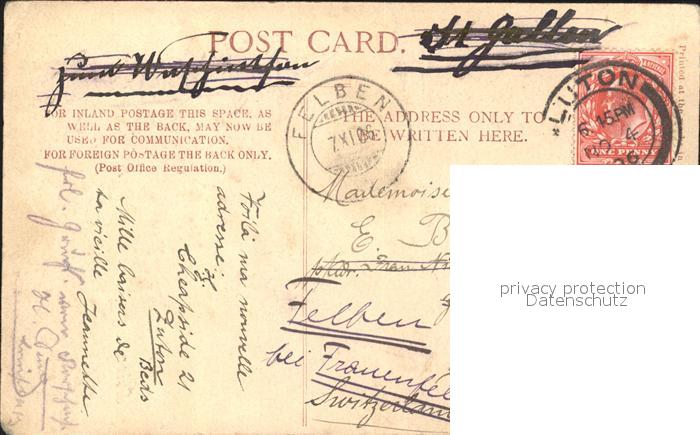 POST CARD.
St Gallen
zum
FOR INLAND POSTAGE THIS SPACE, AS
WELL AS THE BACK, MAY NOW BE
USED FOR COMMUNICATION.
FOR FOREIGN POSTAGE THE BACK ONLY.
(Post Office Regulation.)
THE ADDRESS ONLY TO
BE WRITTEN HERE.
Printed at the
FELBEN
7.XI.06
LUTON
6.15PM
NO 4
06
ONE PENNY
Voilà ma nouvelle
adresse.
Cheapside 21
Luton
Beds
Mille baisers de
ta vieille Jeannette
Mademoise
E. B
Felben
bei Frauenfel
Switzerland
privacy protection
Datenschutz